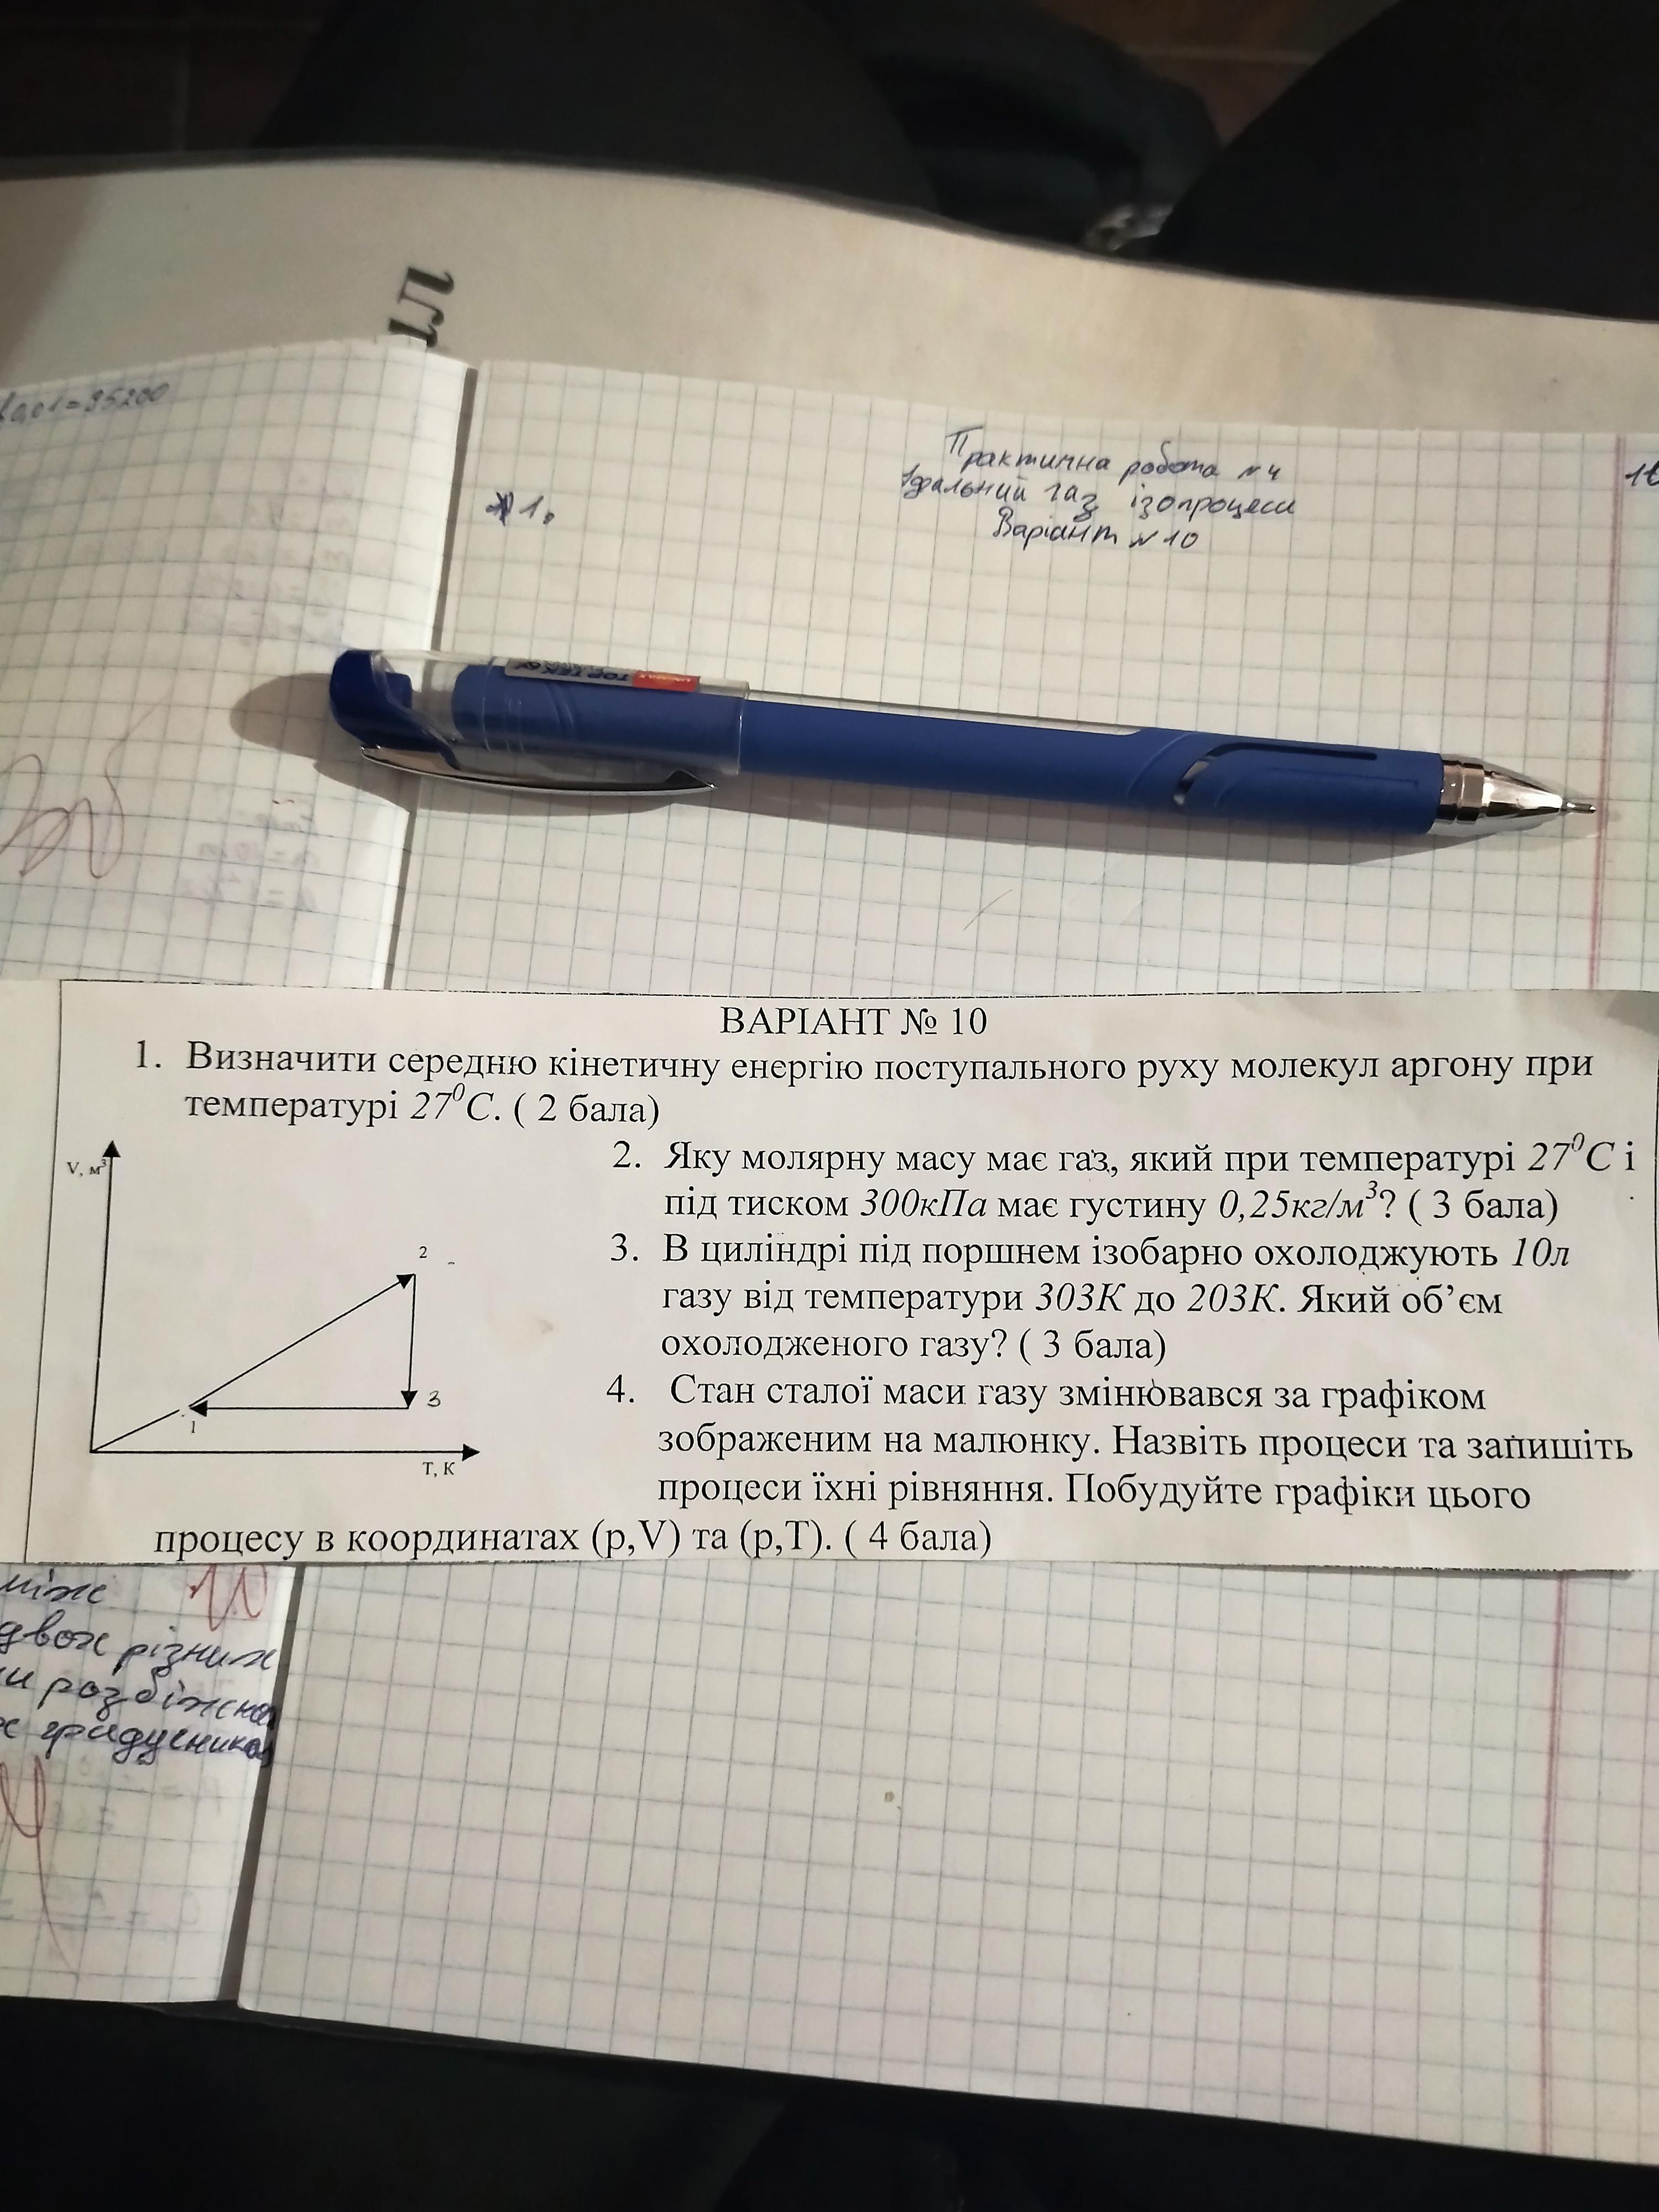 ГЛ
0,01=95200
Практична робота №4
Ідеальний газ ізопроцеси
Варіант №10
1.
TOP TEK
ВАРІАНТ № 10
1. Визначити середню кінетичну енергію поступального руху молекул аргону при
температурі 27⁰С. ( 2 бала)
V, м³
2
3
1
T, K
2. Яку молярну масу має газ, який при температурі 27⁰С і
під тиском 300кПа має густину 0,25кг/м³? ( 3 бала)
3. В циліндрі під поршнем ізобарно охолоджують 10л
газу від температури 303К до 203К. Який об’єм
охолодженого газу? ( 3 бала)
4. Стан сталої маси газу змінювався за графіком
зображеним на малюнку. Назвіть процеси та запишіть
процеси їхні рівняння. Побудуйте графіки цього
процесу в координатах (p,V) та (p,T). ( 4 бала)
між
двох різних
розбіжна